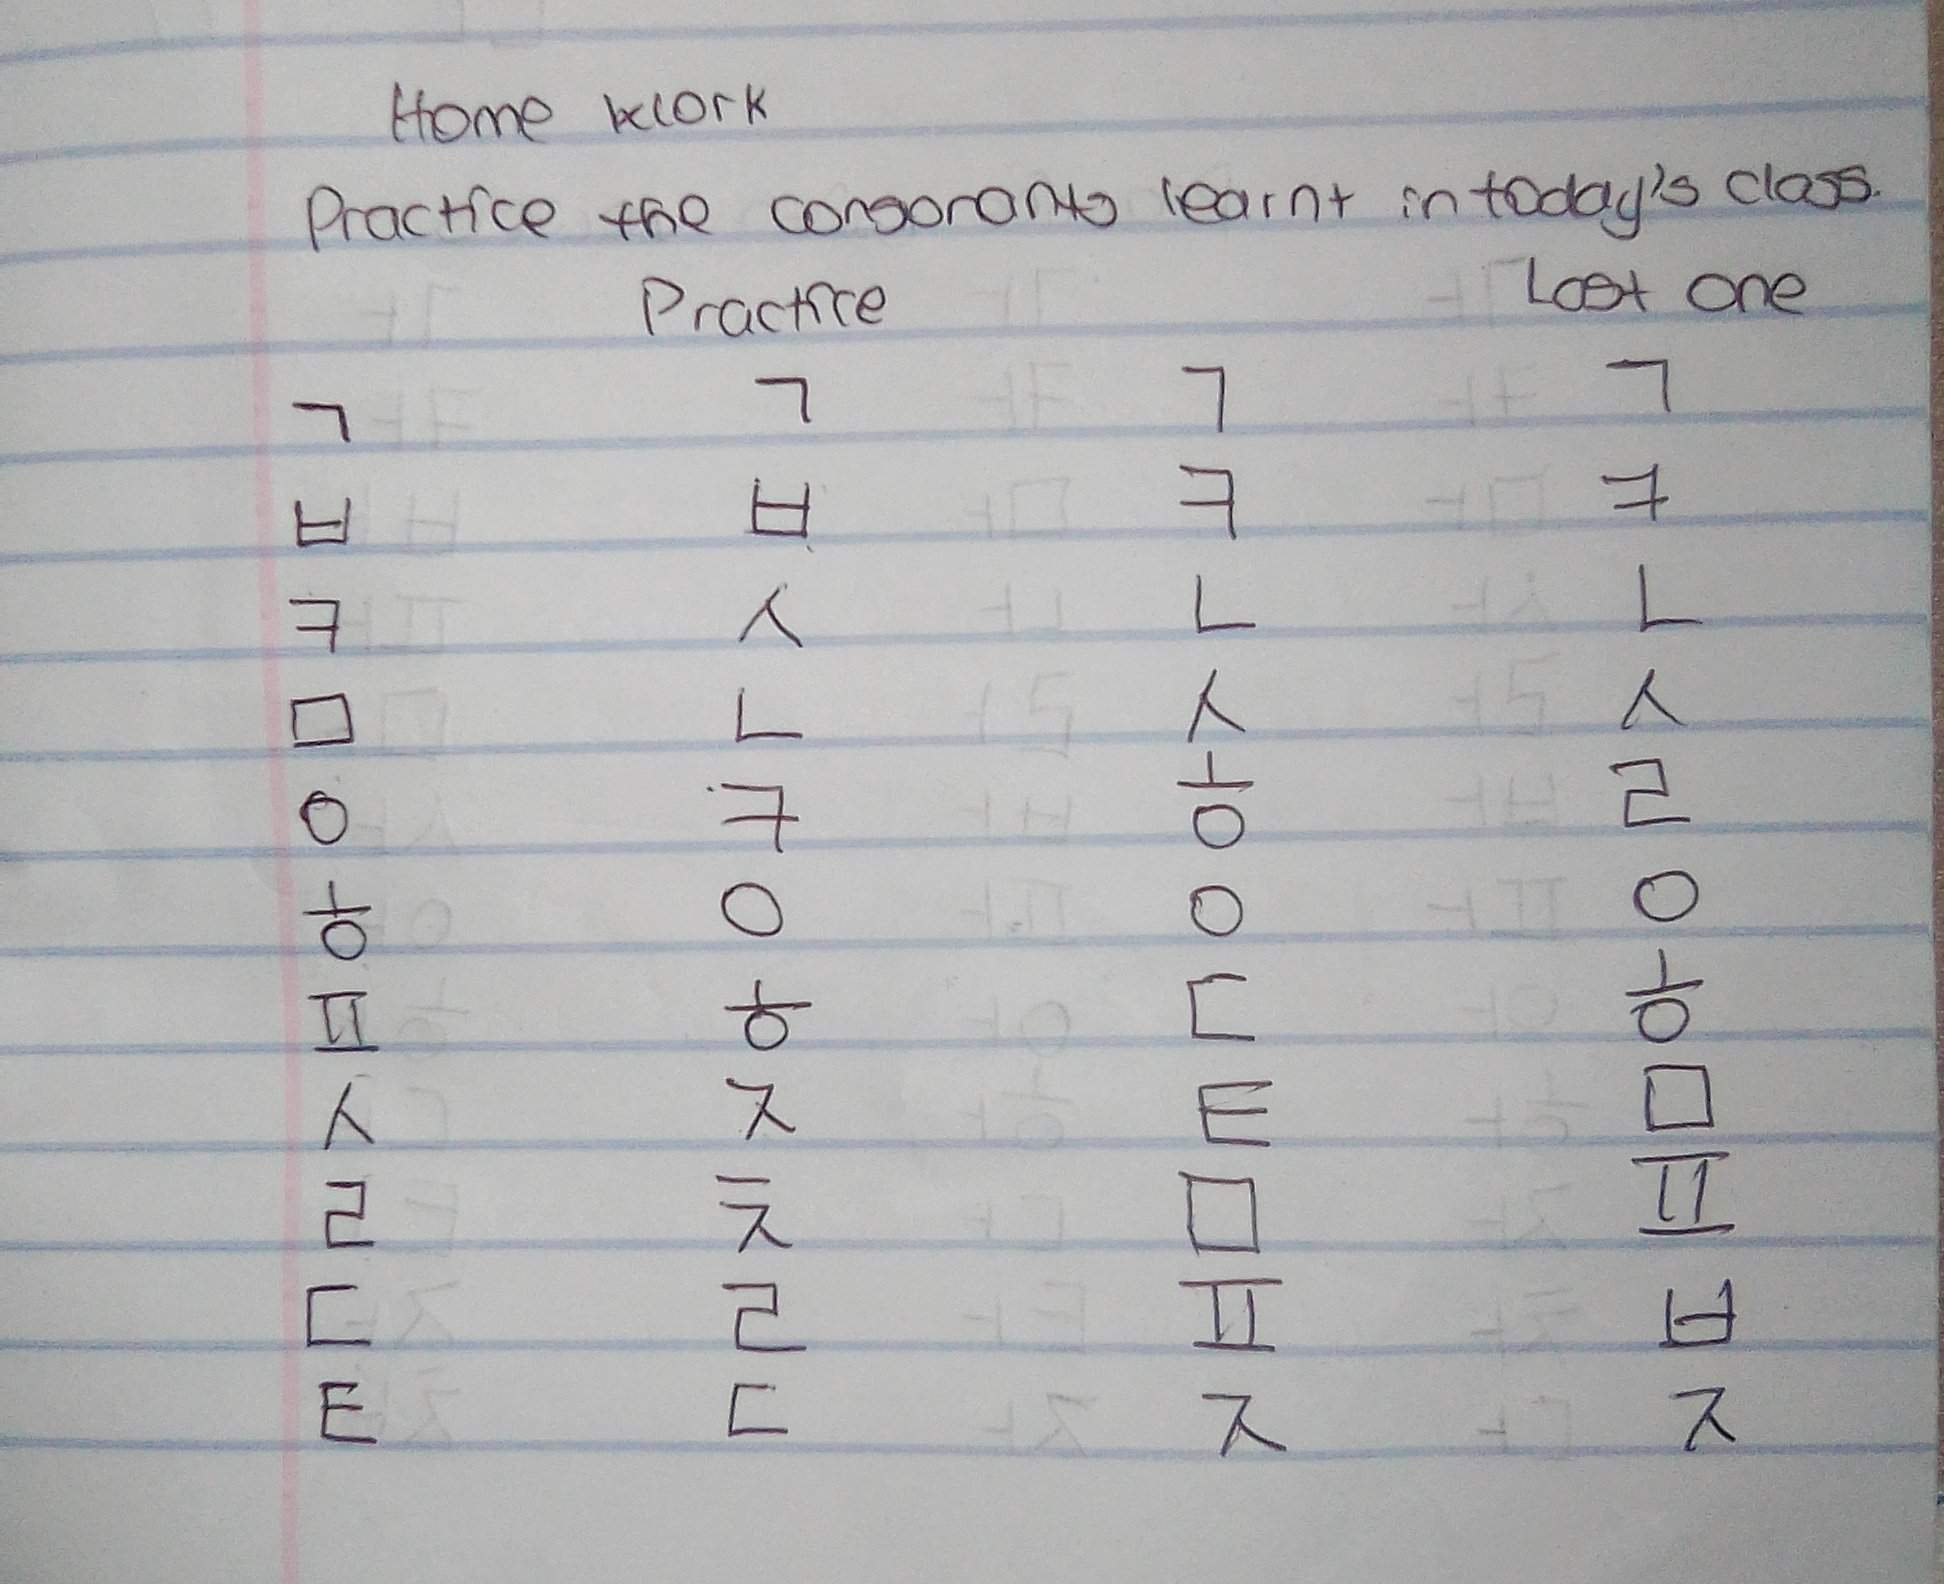 Home work
Practice the consonants learnt in today's class.
Practice Last one
ㄱ ㄱ ㄱ ㄱ
ㅂ ㅂ ㅋ ㅋ
ㅋ ㅅ ㄴ ㄴ
ㅁ ㄴ ㅅ ㅅ
ㅇ ㅋ ㅎ ㄹ
ㅎ ㅇ ㅇ ㅇ
ㅍ ㅎ ㄷ ㅎ
ㅅ ㅈ ㅌ ㅁ
ㄹ ㅊ ㅁ ㅍ
ㄷ ㄹ ㅍ ㅂ
ㅌ ㄷ ㅈ ㅈ